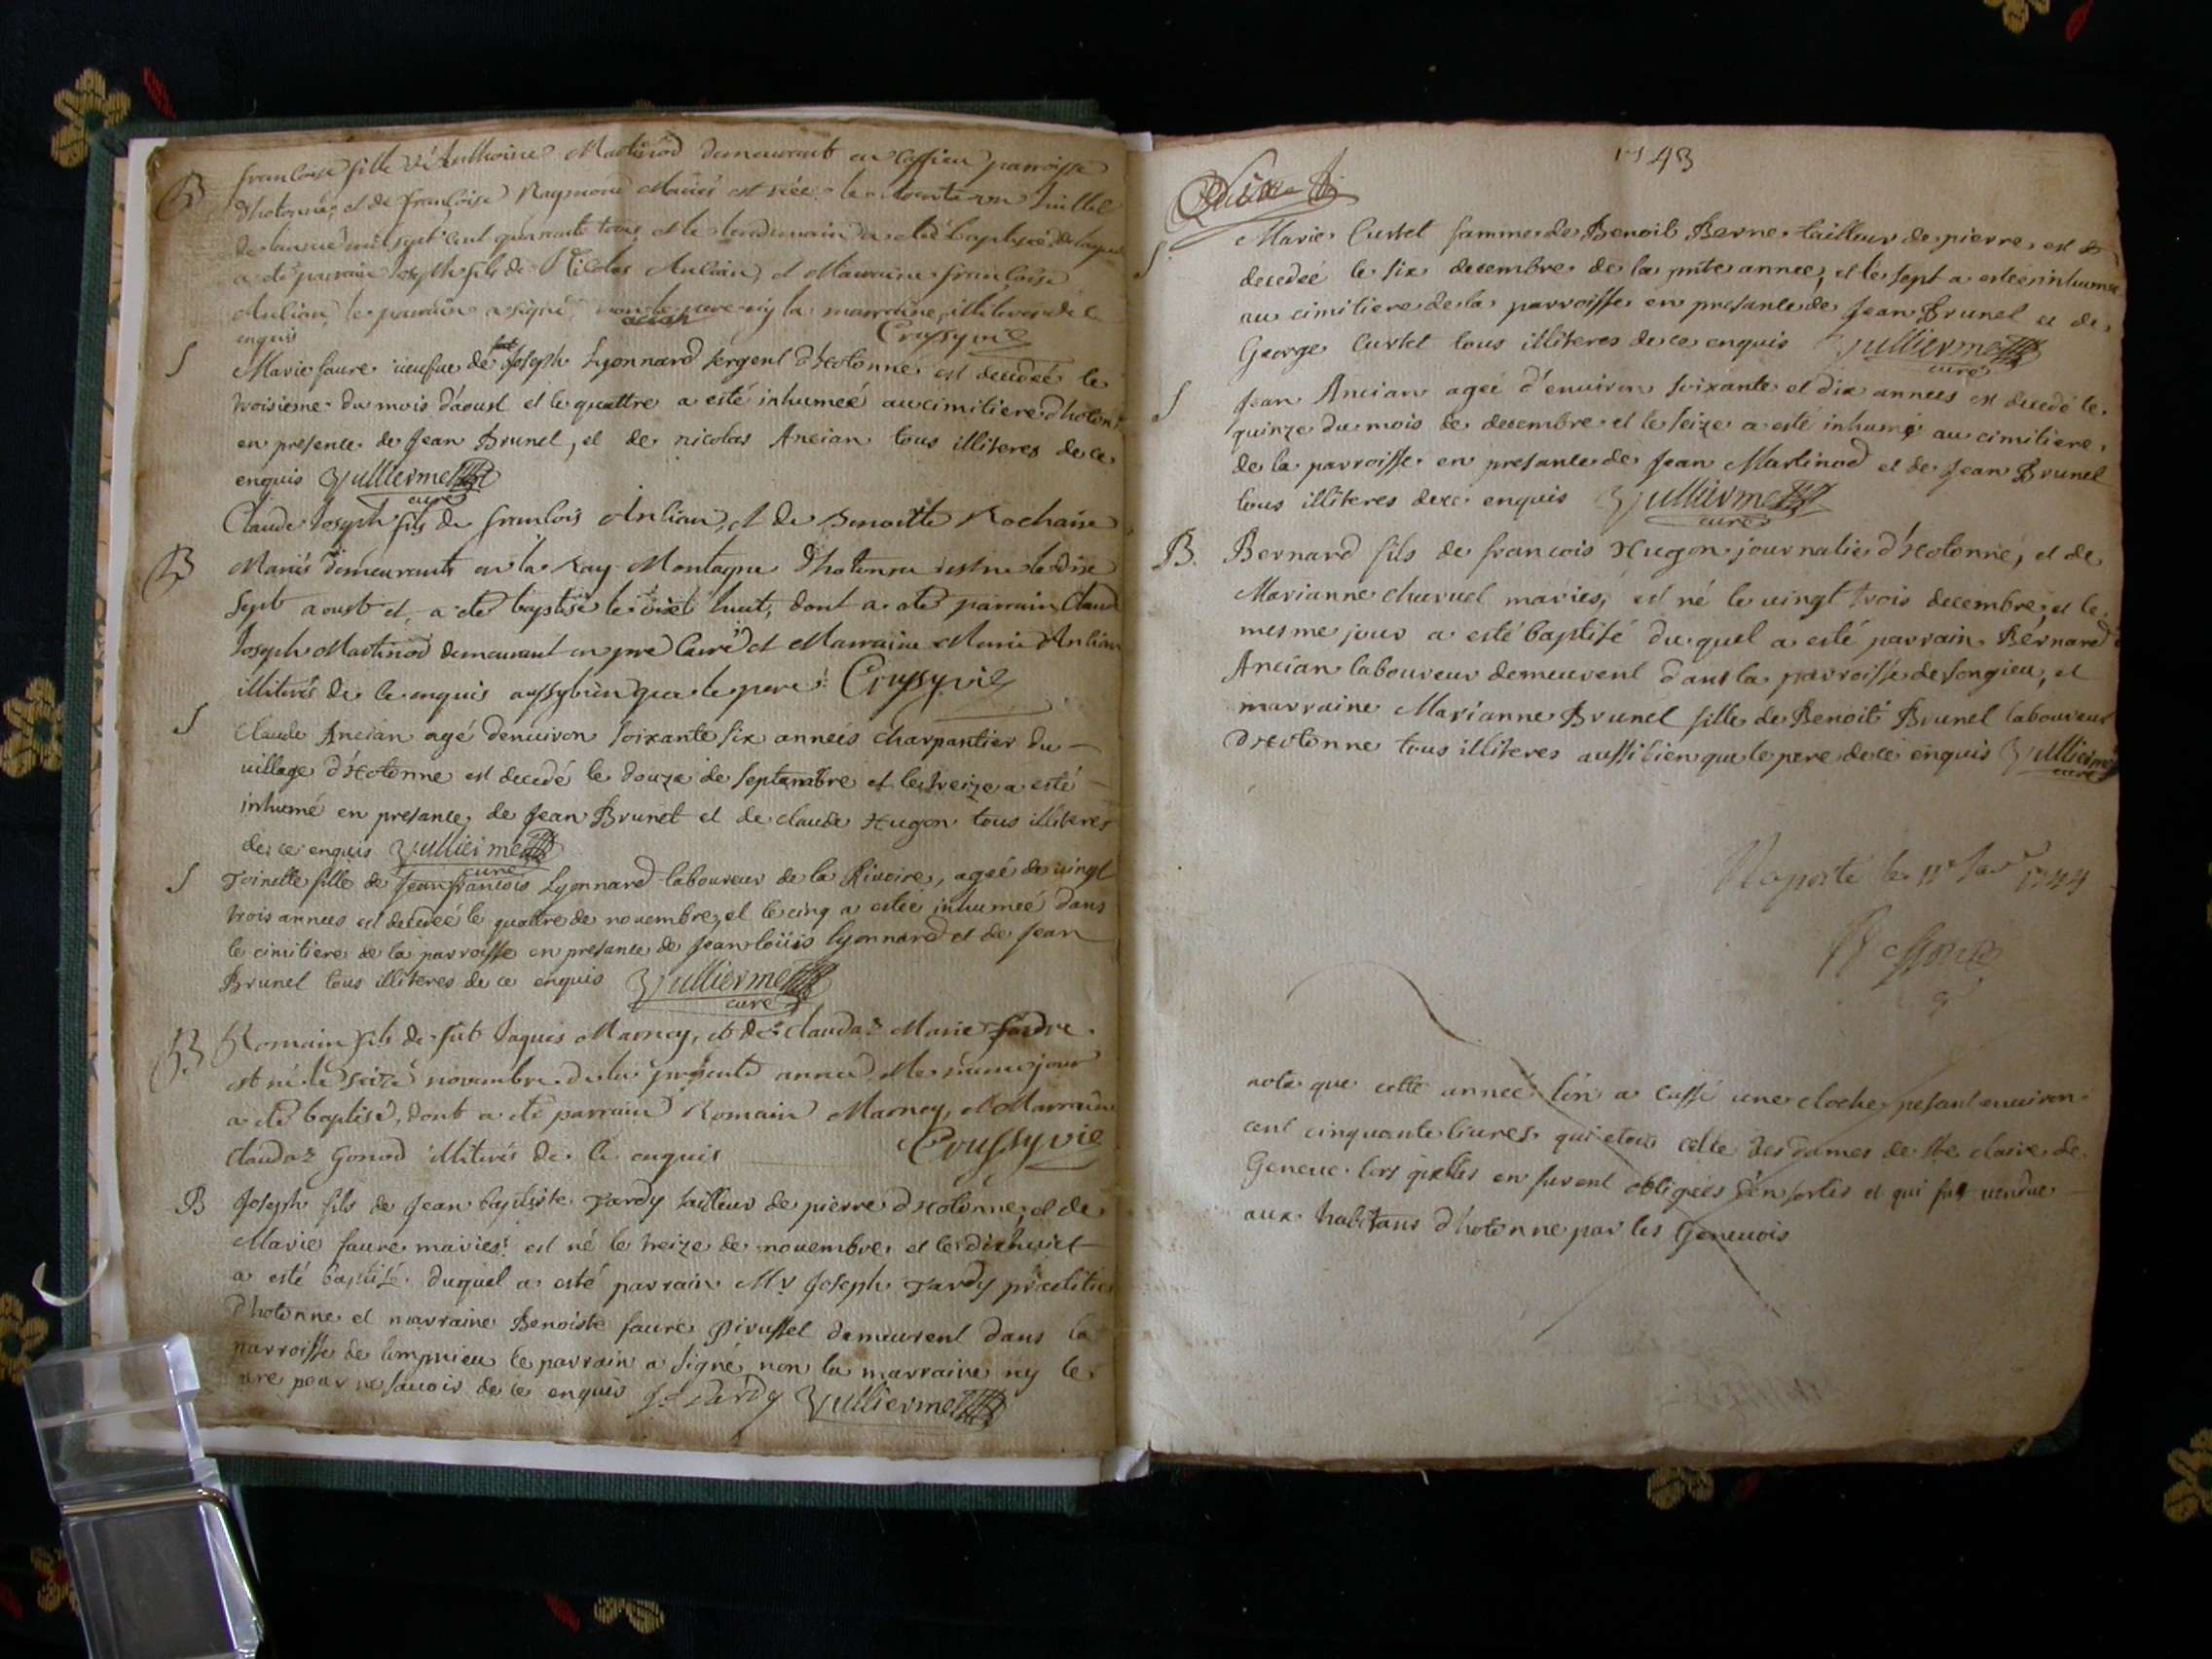 B françoise fille d'Anthoine Martinod demeurant en Cassieu parroisse
d'hotonne, et de françoise Raymond Mariés est née le trente un Juillet
de l'année mil sept cent quarante trois et le lendemain a eté baptisée de laquel
a eté parrain Joseph fils de Nicolas Ancian, et Marraine françoise
Ancian, le parrain a signé, non le pere ny la marraine illiterés de ce
enquis ancian Croysyvie
S Marie faure veufue de feu Joseph Lyonnard sergent d'Hotonne est decedeé le
troisieme du mois d'aoust et le quattre a esté inhumeé au cimitiere d'hotonne
en presence de Jean Brunel, et de nicolas Ancian tous illiteres de ce
enquis Vulliermet curé
Claude Joseph fils de francois Ancian, et de Benoitte Rochaix
B Mariés demeurants en la Ray Montagne d'hotonne est né le dix
sept aoust et a eté baptisé le dixet huit, dont a eté parrain Claude
Joseph Martinod demeurant en pra Carré et Marraine Marie Ancian
illiterés de ce enquis aussy bien que le pere Croysyvie
S Claude Ancian agé d'enuiron soixante six anneés charpantier du
village d'Hotonne est decedé le douze de septambre et le treize a esté
inhumé en presance de Jean Brunet et de claude Hugon tous illiteres
de ce enquis Vulliermet curé
S Toinette fille de Jean francois Lyonnard laboureur de la Riuoire, ageé de uingt
trois annees est decedeé le quattre de nouembre, et le cinq a esteé inhumeé dans
le cimitiere de la parroisse en presance de Jean loüis lyonnard et de Jean
Brunel tous illiteres de ce enquis Vulliermet curé
B Romain fils de fut Jaques Marney, et de Claudaz Marie
est né le seize novembre de la presente année et le même jour
a eté baptisé, dont a eté parrain Romain Marney, et Marraine
Claudaz Gonod illiterés de ce enquis Croysyvie
B Joseph fils de Jean baptiste Tardy tailleur de pierre d'Hotonne, et de
Marie faure mariés est né le treize de nouembre et le dixhuict
a esté baptisé duquel a esté parrain Mr Joseph Tardy practitien
d'hotonne et marraine Benoiste faure Pirussel demeurent dans la
parroisse de lompnieu le parrain a signé non la marraine ny le
pere pour ne sauoir de ce enquis Jh Tardy Vulliermet
1743
Dix
S Marie Curtet famme de Benoit Berne tailleur de pierre est
decedeé le six decembre de la pnte anneé, et le sept a esteé inhumeé
au cimitiere de la parroisse en presante de Jean Brunel et de
George Curtet tous illiteres de ce enquis Vulliermet curé
S Jean Ancian ageé d'enuiron soixante et dix annees est decedé le
quinze du mois de decembre et le seize a esté inhumé au cimitiere
de la parroisse en presante de Jean Martinod et de Jean Brunel
tous illiteres de ce enquis Vulliermet curé
B. Bernard fils de francois Hugon journalie d'Hotonne, et de
Marianne charuel mariés, est né le uingt trois decembre, et le
mesme jour a esté baptisé du quel a esté parrain Bernard
Ancian laboureur demeurent dans la parroisse de songieu, et
marraine Marianne Brunel fille de Benoit Brunel laboureur
d'Hotonne tous illiteres aussi bien que le pere de ce enquis Vulliermet curé
Raporté le 11e Janr 1744
note que cette anneé l'on a cassé une cloche pesant enuiron
cent cinquante liures qui etoit celle des dames de Ste claire de
Geneue lors qu'elles en furent obligées d'en sortir et qui fut uendue
aux habitans d'hotonne par les Geneuois